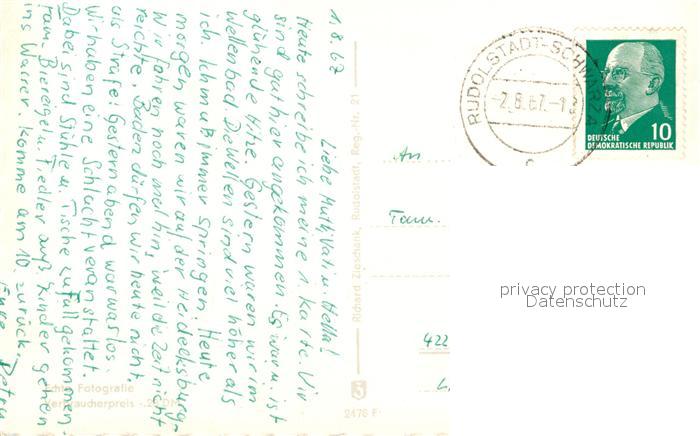 1.8.67
Liebe Mutti, Vati u. Hella!
Heute schreibe ich meine 1. Karte. Wir
sind gut hier angekommen. Es war u. ist
glühende Hitze. Gestern waren wir im
Wellenbad. Die Wellen sind viel höher als
ich. Ich muß immer springen. Heute
morgen waren wir auf der Heidecksburg.
Wir fahren noch mal hin, weil die Zeit nicht
reichte. Baden dürfen wir heute nicht
als Strafe! Gestern abend war was los.
Wir haben eine Schlacht veranstaltet.
Dabei sind Stühle u. Tische zu Fall gekommen.
Fam. Biereigel u. Fiedler auß. Kinder gehen
ins Wasser. Komme am 10. zurück.
Eure Petra
Echte Fotografie
Verbraucherpreis -.20 DM
Richard Zieschank, Rudolstadt, Reg.-Nr. 21
2476 F
RUDOLSTADT-SCHWARZA
-2.8.67.-1
c
DEUTSCHE
DEMOKRATISCHE REPUBLIK
10
An
Fam.
422
privacy protection
Datenschutz